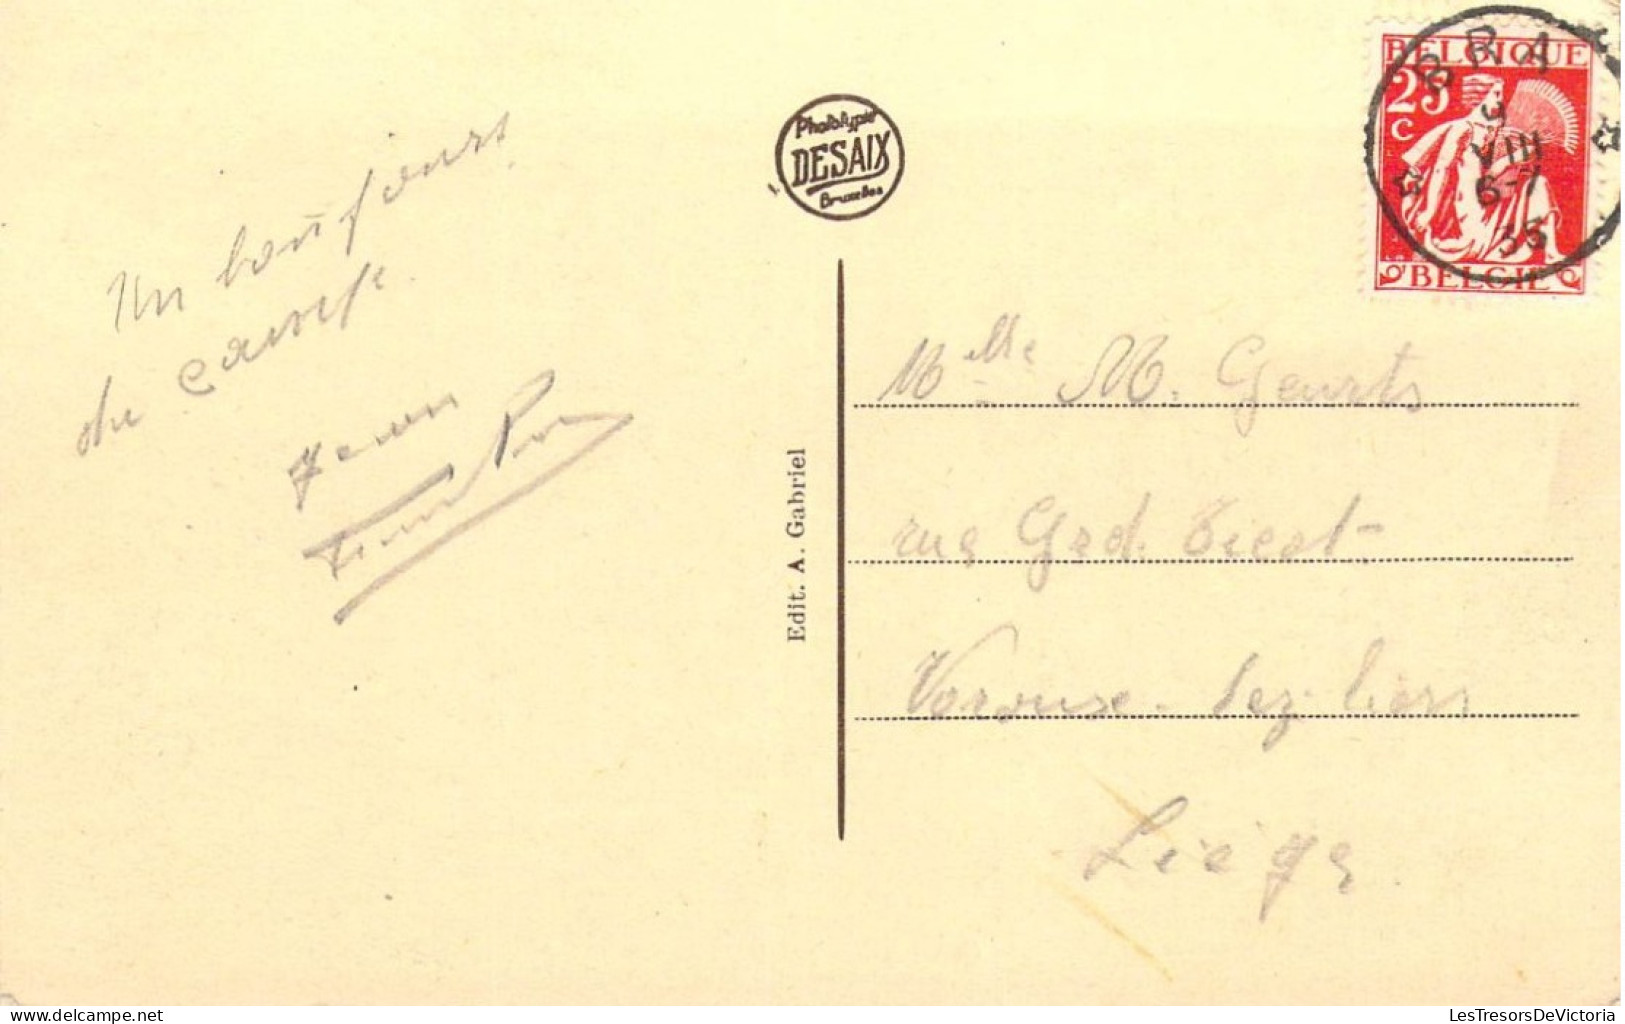 Un bonjour
du camp.
Jean
Phototypie
DESAIX
Bruxelles
Edit. A. Gabriel
BELGIQUE
25
C
BELGIE
BRA
9
VIII
6-7
35
Mlle M. Geurts
rue Grd.
Voroux-lez-Liers
Liége.
https://www.delcampe.net
LesTresorsDeVictoria